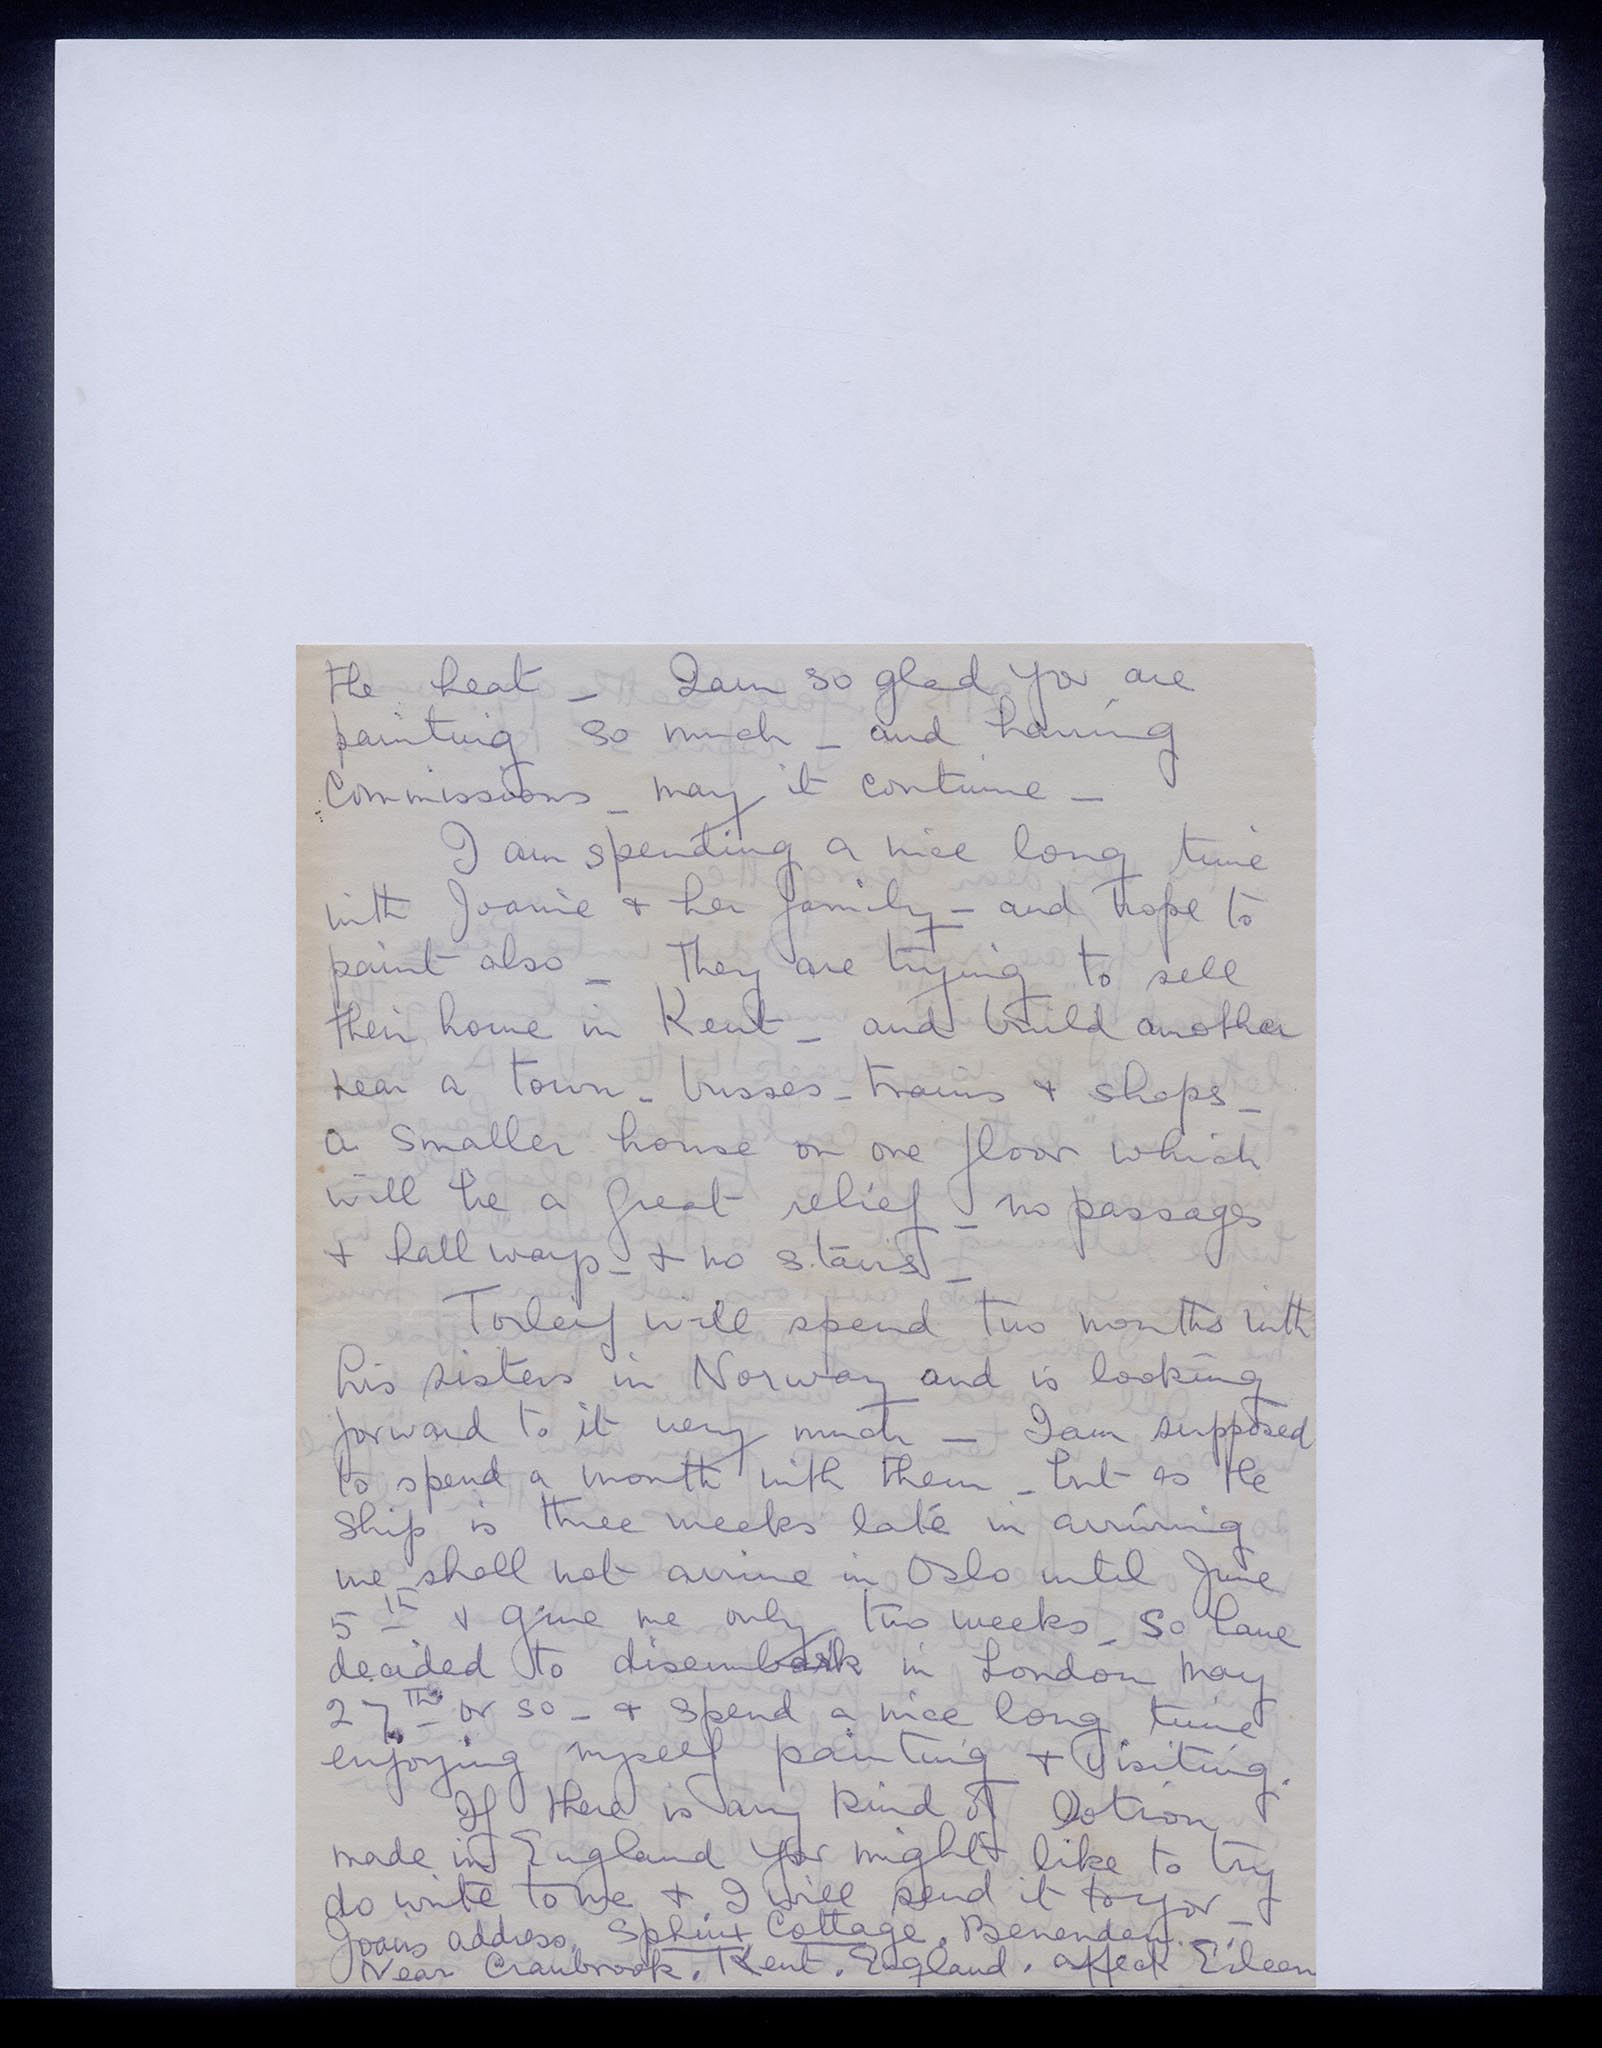 the heat _ I am so glad you are
painting so much _ and having
commissions _ may it continue _
I am spending a nice long time
with Joanie + her family _ and hope to
paint also _ They are trying to sell
their home in Kent _ and build another
near a town _ busses _ trains + shops _
a smaller house on one floor which
will be a great relief _ no passages
+ hall ways _ + no stairs _
Torleif will spend two months with
his sisters in Norway and is looking
forward to it very much _ I am supposed
to spend a month with them _ but as the
ship is three weeks late in arriving
we shall not arrive in Oslo until June
5th + give me only two weeks _ so have
decided to disembark in London May
27th or so _ + spend a nice long time
enjoying myself painting + visiting.
If there is any kind of lotion
made in England you might like to try
do write to me + I will send it to you _
Joans address, Sphinx Cottage, Benenden. _
Near Cranbrook. Kent. England. affeck Eileen